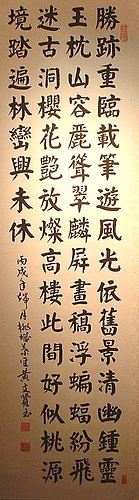 勝跡重臨載筆遊風光依舊景清幽鍾靈
王枕山容麗聳翠麟屏畫稿浮蝙蝠紛飛
迷古洞櫻花艷放燦高樓此間好似桃源
境踏遍林巒興未休
丙戌年月桃城黃文賢